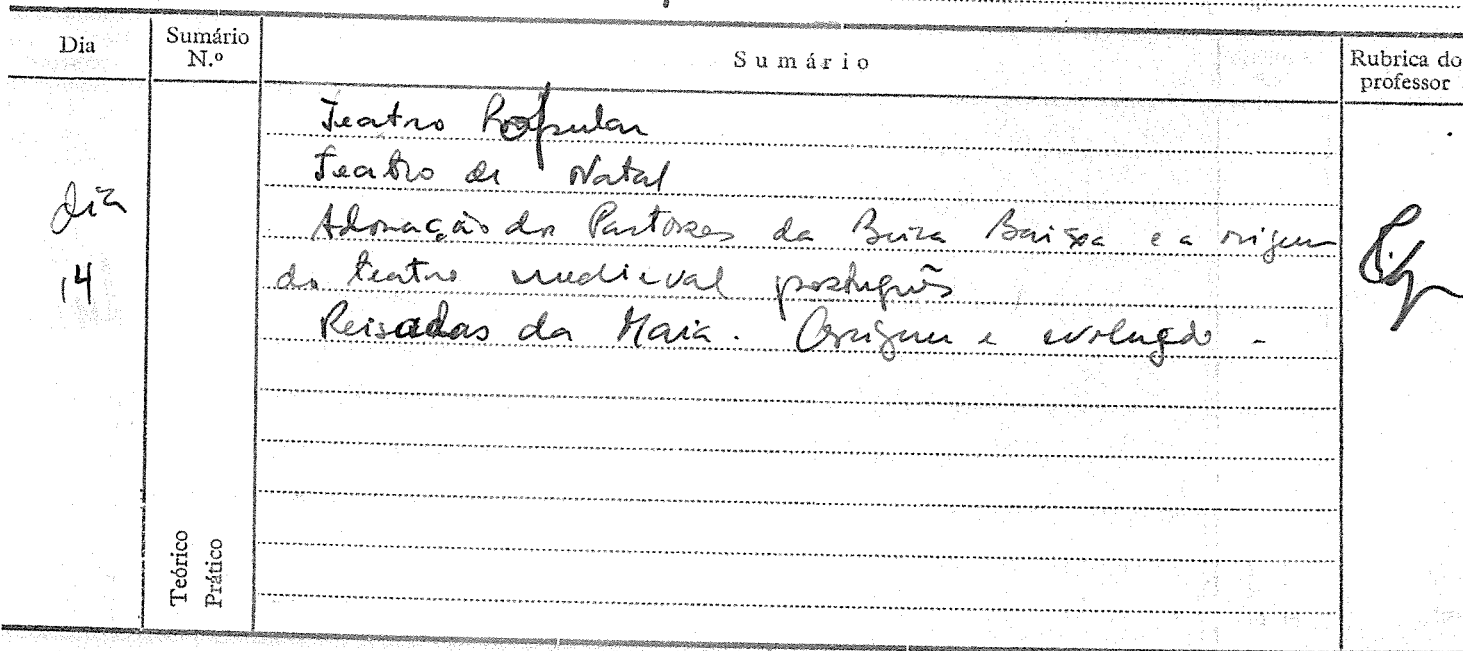 Dia Sumário N.º Sumário Rubrica do professor
dia 14
Teatro Popular
Teatro de Natal
Adoração dos Pastores da Beira Baixa e a origem
do teatro medieval português
Reisadas da Maia. Origem e evolução -
Teórico
Prático